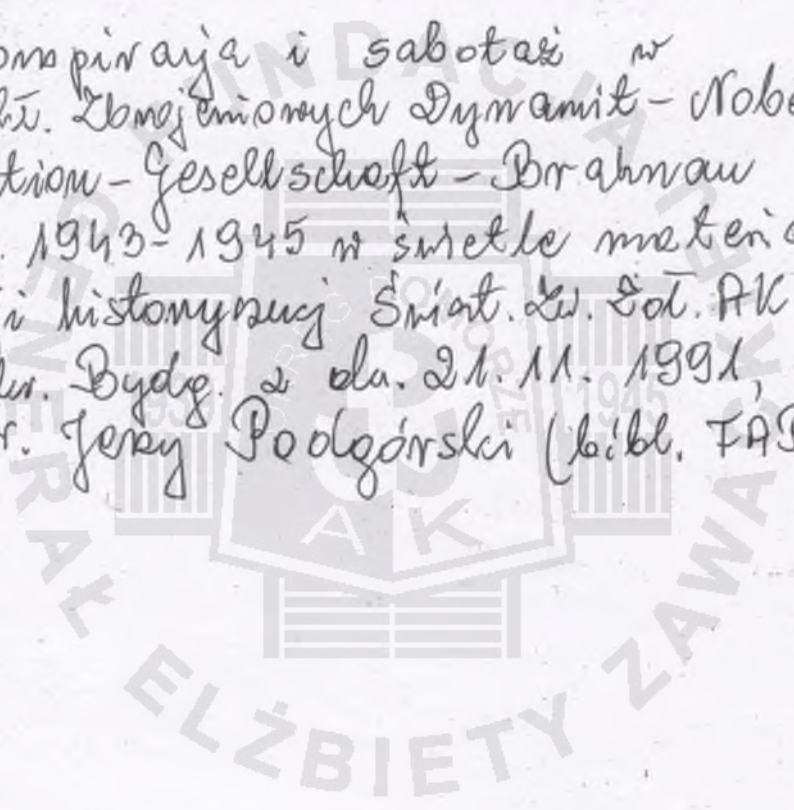 onspiracja i sabotaż w
Zbrojeniowych Dynamit-Nobe
tion-Gesellschaft-Brahnau
. 1943-1945 w świetle materia
i historycznej Świat. Zw. Żoł. AK
Bydg. z dn. 21.11.1991,
r. Jerzy Podgórski (bibl. FAP
FUNDACJA
GENERAŁ ELŻBIETY ZAWA
POMORZE
1939
1945
AK